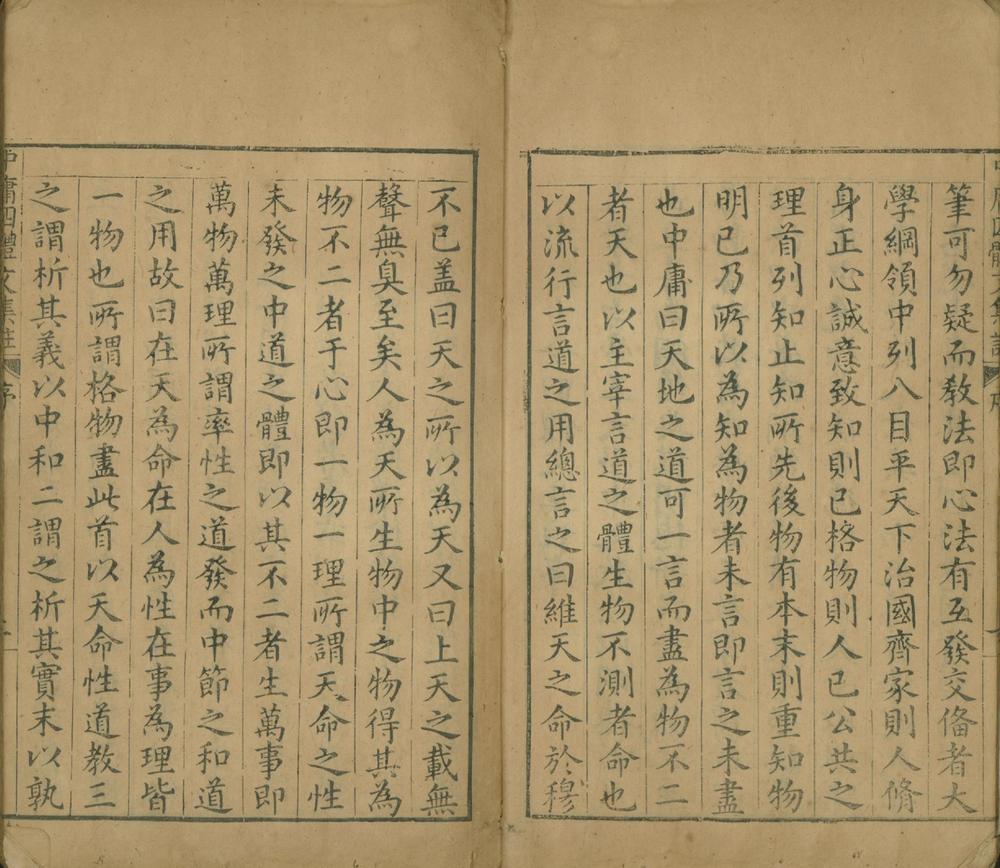 筆可勿疑而敎法即心法有互發交俻者大
學綱領中列八目平天下治國齊家則人脩
身正心誠意致知則已格物則人已公共之
理首列知止知所先後物有本末則重知物
明已乃所以為知為物者未言即言之未盡
也中庸曰天地之道可一言而盡為物不二
者天也以主宰言道之體生物不測者命也
以流行言道之用總言之曰維天之命於穆
不已盖曰天之所以為天又曰上天之載無
聲無臭至矣人為天所生物中之物得其為
物不二者于心即一物一理所謂天命之性
未發之中道之體即以其不二者生萬事即
萬物萬理所謂率性之道發而中節之和道
之用故曰在天為命在人為性在事為理皆
一物也所謂格物盡此首以天命性道教三
之謂析其義以中和二謂之析其實末以孰
中庸四體文集註 序